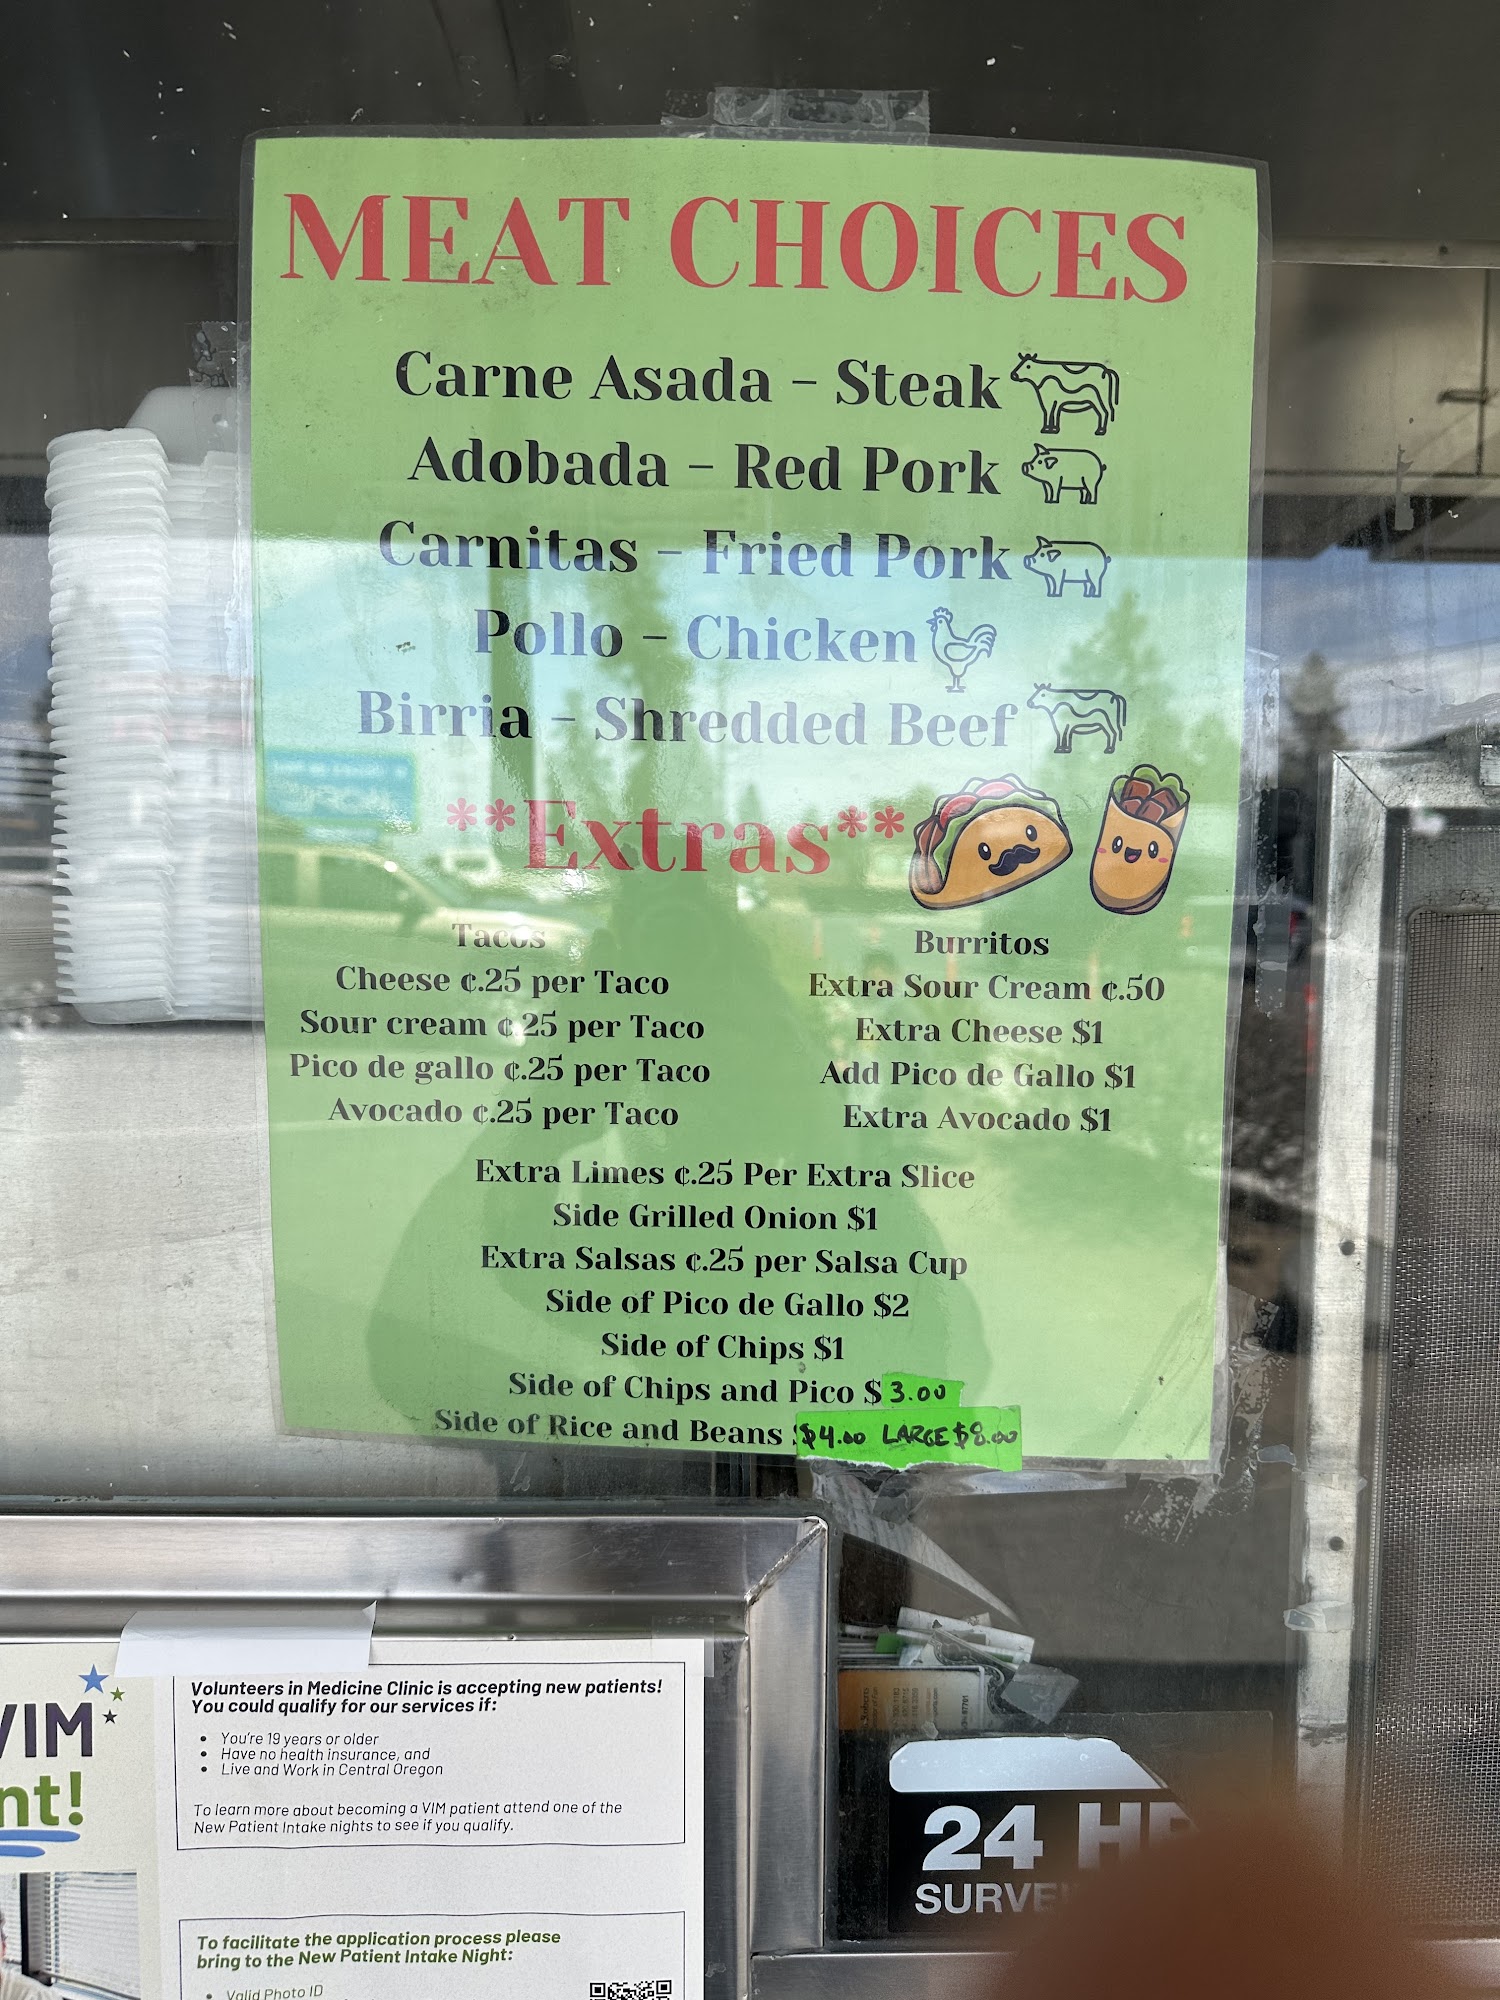 MEAT CHOICES
Carne Asada - Steak
Adobada - Red Pork
Carnitas - Fried Pork
Pollo - Chicken
Birria - Shredded Beef
**Extras**
Tacos
Cheese ¢.25 per Taco
Sour cream ¢.25 per Taco
Pico de gallo ¢.25 per Taco
Avocado ¢.25 per Taco
Burritos
Extra Sour Cream ¢.50
Extra Cheese $1
Add Pico de Gallo $1
Extra Avocado $1
Extra Limes ¢.25 Per Extra Slice
Side Grilled Onion $1
Extra Salsas ¢.25 per Salsa Cup
Side of Pico de Gallo $2
Side of Chips $1
Side of Chips and Pico $3.00
Side of Rice and Beans $4.00 LARGE $8.00
VIM
nt!
Volunteers in Medicine Clinic is accepting new patients!
You could qualify for our services if:
• You're 19 years or older
• Have no health insurance, and
• Live and Work in Central Oregon
To learn more about becoming a VIM patient attend one of the
New Patient Intake nights to see if you qualify.
To facilitate the application process please
bring to the New Patient Intake Night:
• Valid Photo ID
24 H
SURVE